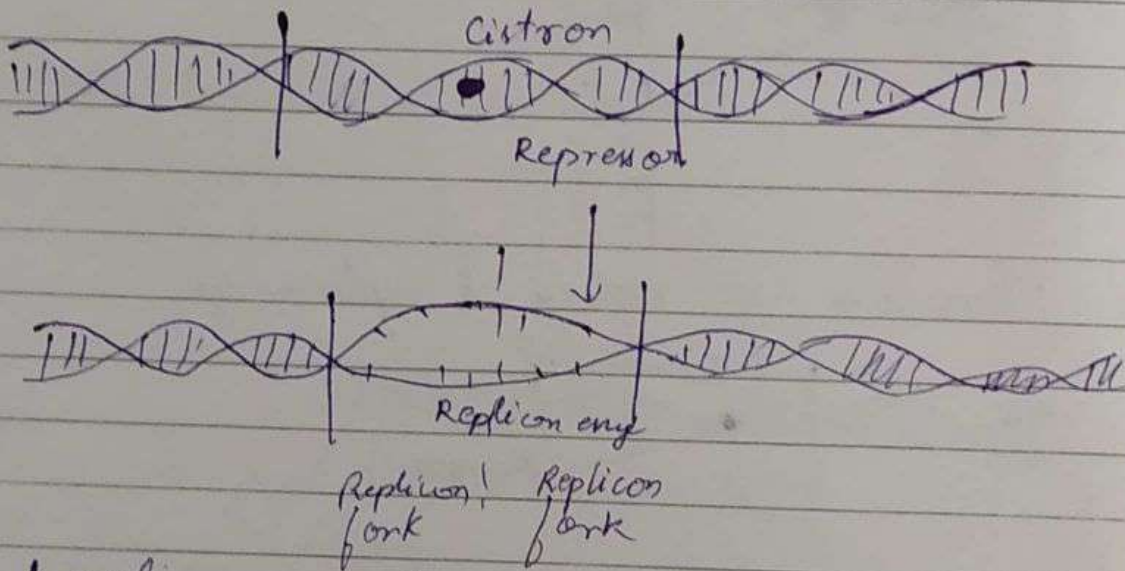 Cistron
Repressor
Replicon enz
Replicon Replicon
fork fork